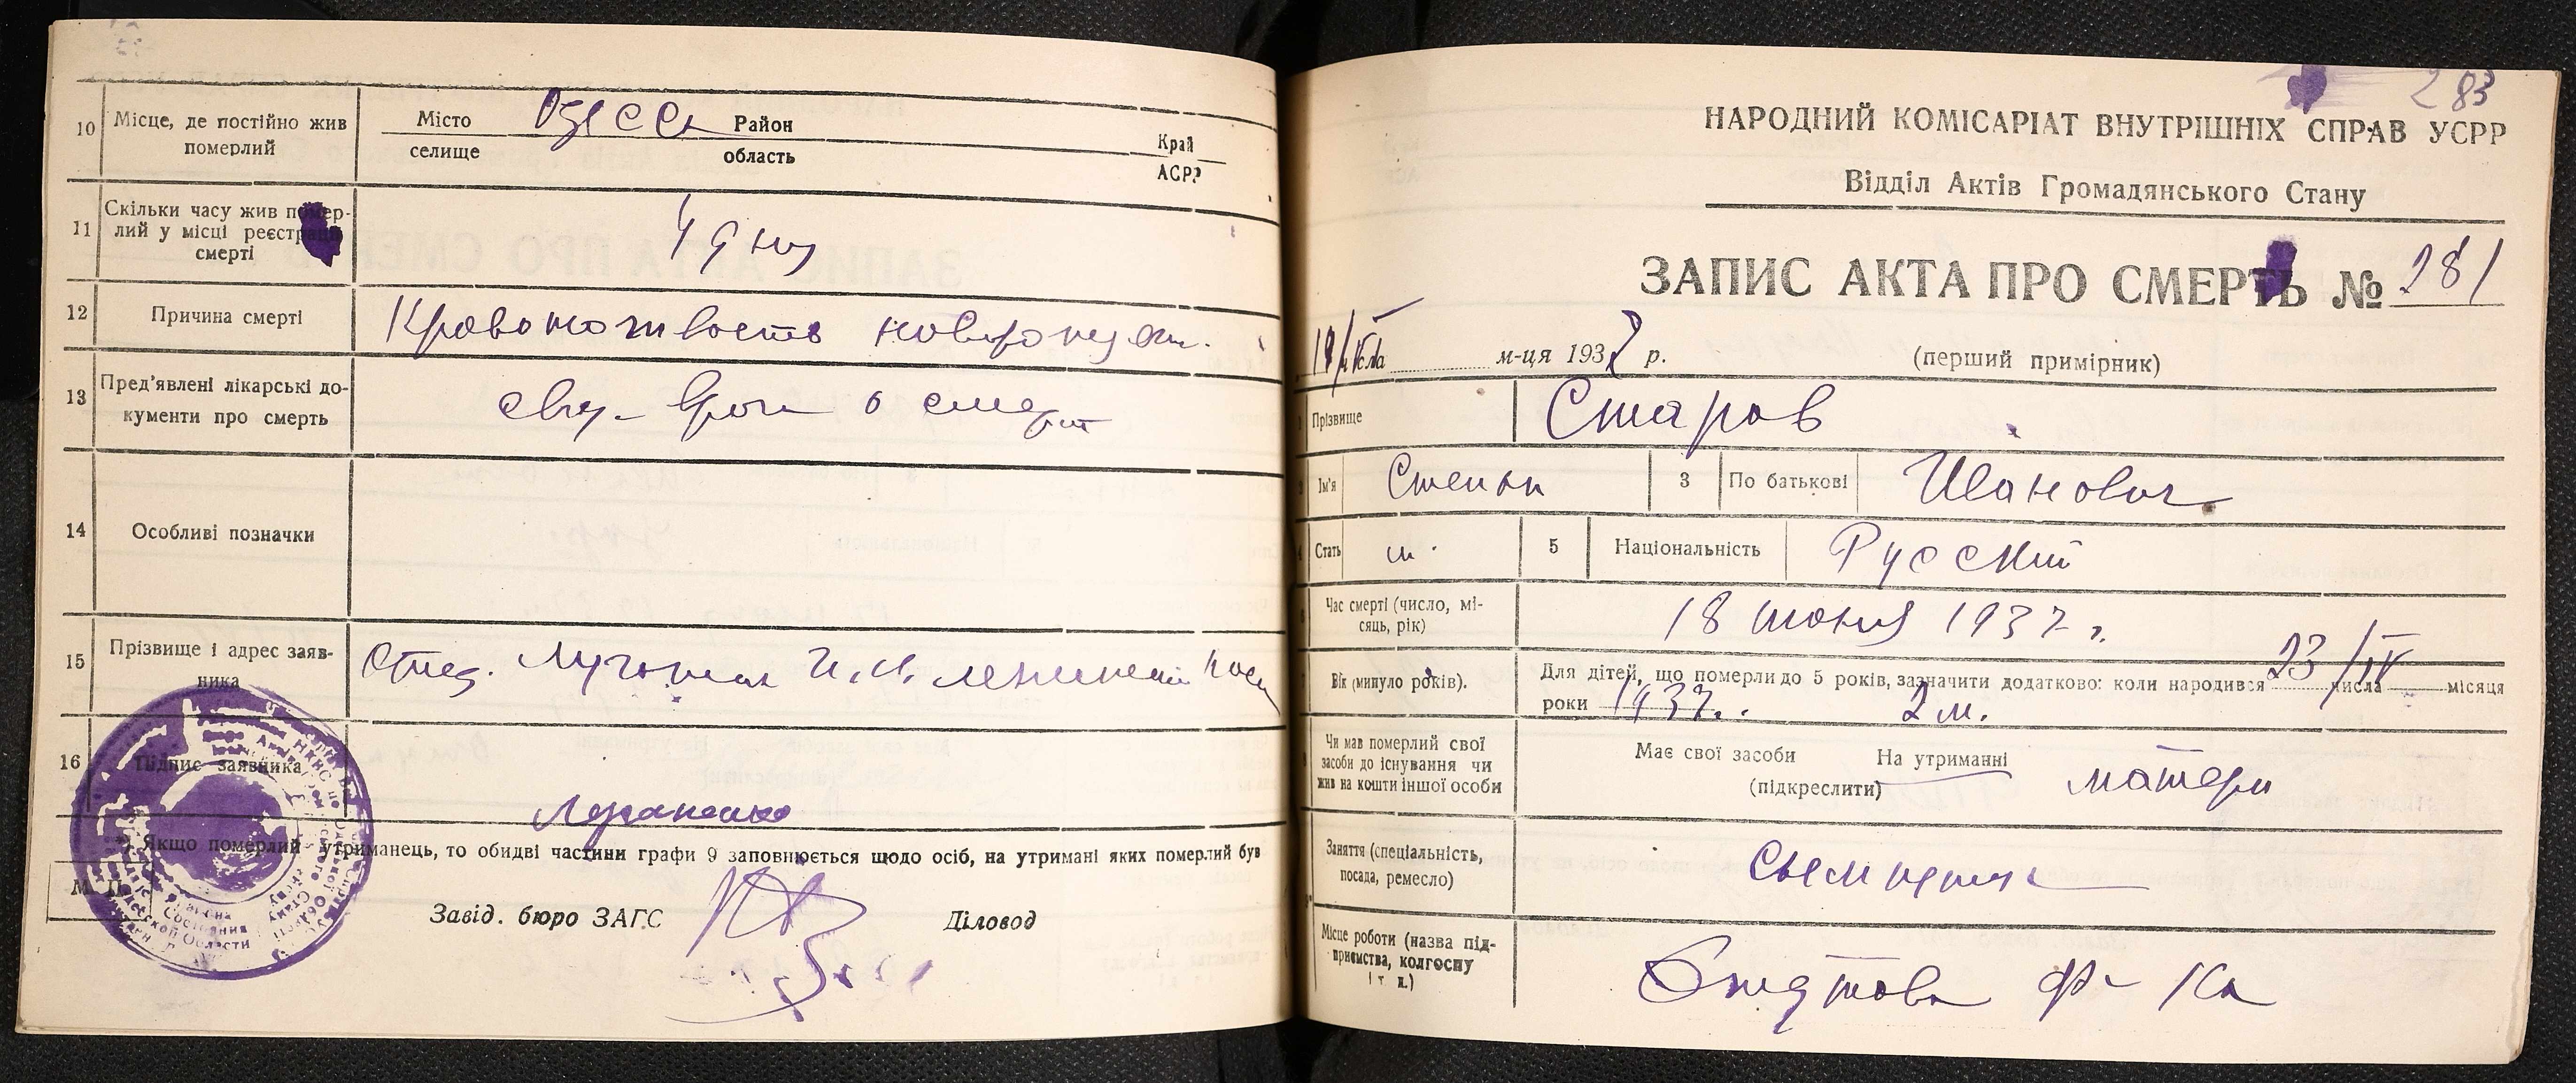 10 Місце, де постійно жив померлий
Місто Одесса Район Край
селище область АСРР
11 Скільки часу жив померлий у місці реєстрації смерті
4 дня
12 Причина смерті
Кровоточивость
13 Пред'явлені лікарські документи про смерть
о смерти
14 Особливі позначки
15 Прізвище і адрес заявника
16 Підпис заявника
Якщо померлий утриманець, то обидві частини графи 9 заповнюється щодо осіб, на утримані яких померлий був
М. П.
Завід. бюро ЗАГС Діловод
283
НАРОДНИЙ КОМІСАРІАТ ВНУТРІШНІХ СПРАВ УСРР
Відділ Актів Громадянського Стану
ЗАПИС АКТА ПРО СМЕРТЬ № 281
м-ця 1937 р. (перший примірник)
Прізвище Старов
Ім'я Степан 3 По батькові Иванович
Стать м. 5 Національність Русский
Час смерті (число, місяць, рік) 18 июня 1937 г.
Вік (минуло років). Для дітей, що померли до 5 років, зазначити додатково: коли народився 23/IV числа місяця
роки 1937. 2 м.
Чи мав померлий свої засоби до існування чи жив на кошти іншої особи
Має свої засоби На утриманні матери
(підкреслити)
Заняття (спеціальність, посада, ремесло)
Місце роботи (назва підприємства, колгоспу і т. п.)
ф-ка